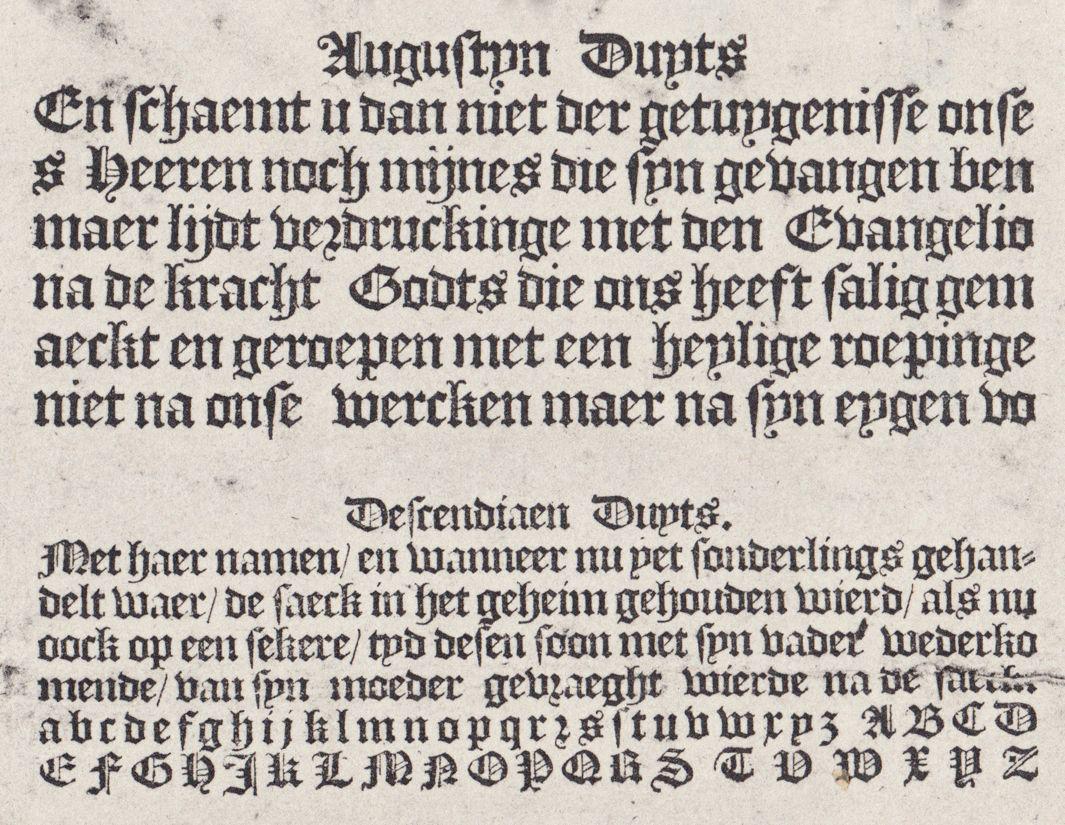 Auguſtyn Duyts
En ſchaemt u dan niet der getuygeniſſe onſe
s Heeren noch mijnes die ſyn gevangen ben
maer lijdt veꝛdruckinge met den Evangelio
na de kracht Godts die ons heeft ſalig gem
aeckt en geroepen met een heylige roepinge
niet na onſe wercken maer na ſyn eygen vo
Deſcendiaen Duyts.
Met haer namen/ en wanneer nu yet ſonderlings gehan⸗
delt waer/ de ſaeck in het geheim gehouden wierd/ als nu
oock op een ſekere/ tyd deſen ſoon met ſyn vader wederko
mende/ van ſyn moeder gevꝛaeght wierde na de
a b c d e f g h i j k l m n o p q r ꝛ s ſ t u v w x y z A B C D
E F G H J K L M N O P Q R S T V W X Y Z